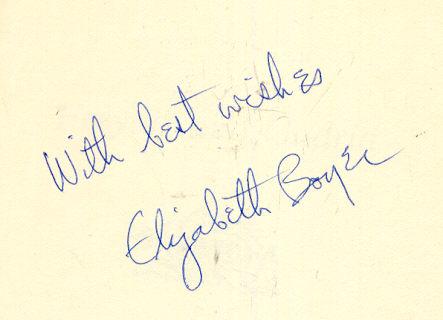 With best wishes
Elizabeth Boyer